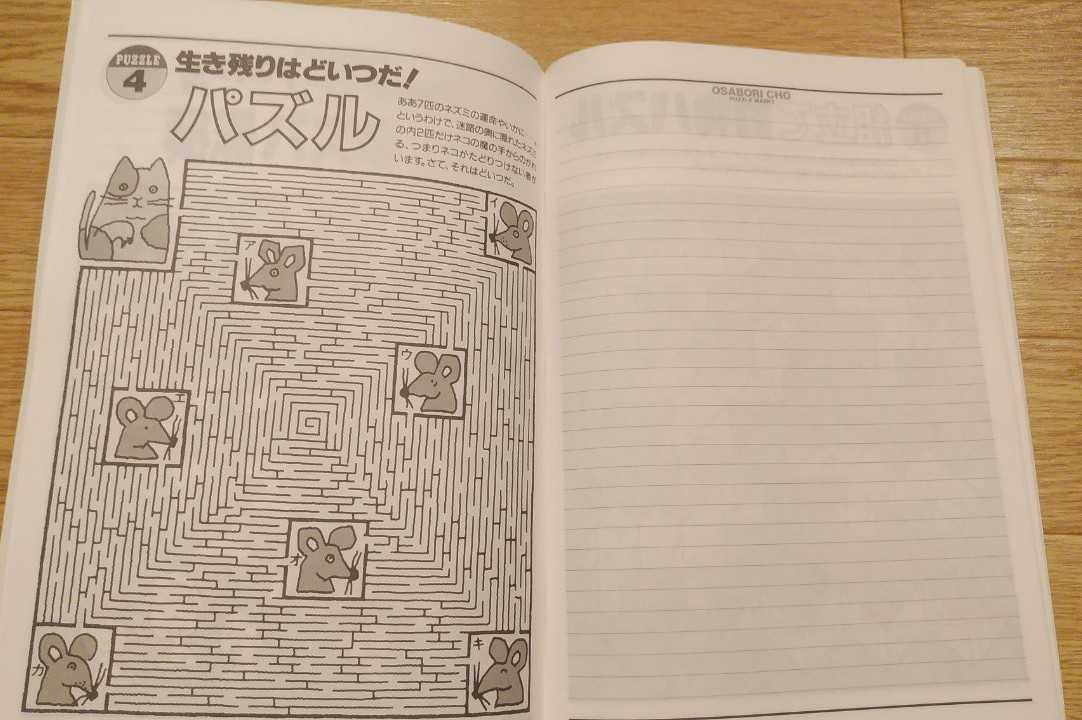 PUZZLE
4
生き残りはどいつだ!
パズル
ああ7匹のネズミの運命やいかに…
というわけで、迷路の奥に隠れたネズミ
の内2匹だけネコの魔の手からのがれ
る、つまりネコがたどりつけない者が
います。さて、それはどいつだ。
ア
イ
ウ
エ
オ
カ
キ
OSABORI CHO